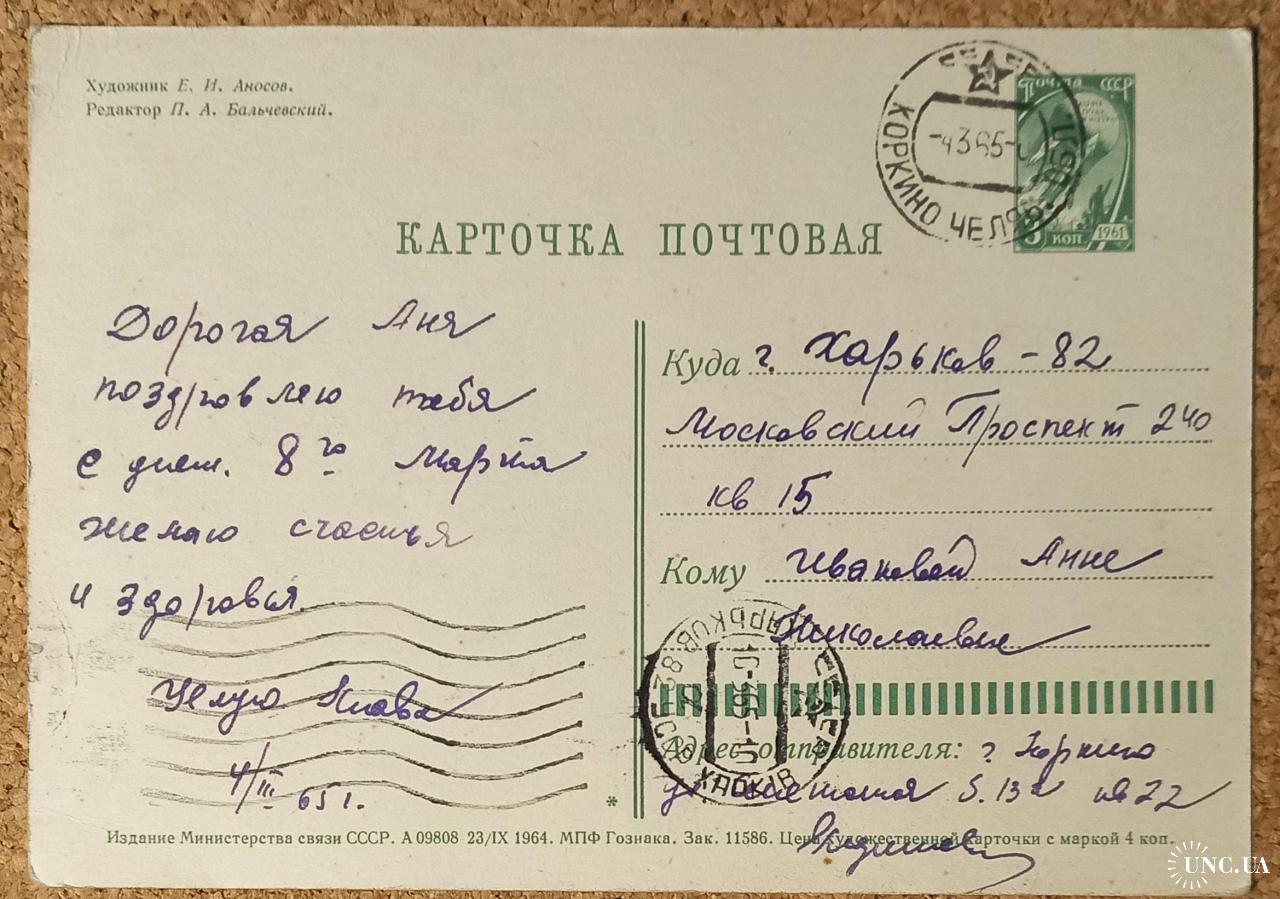 Художник Е. И. Аносов.
Редактор П. А. Бальчевский.
СССР
КОРКИНО ЧЕЛЯБ. ОБЛ.
-4365-
ПОЧТА СССР
3 КОП 1961
КАРТОЧКА ПОЧТОВАЯ
Дорогая Аня
поздровляю тебя
с днем. 8го Марта
желаю счастья
и здоровья
Целую Клава
4/III 65 г.
Куда г. Харьков - 82
Московский Проспект 240
кв 15
Кому Ивановой Анне
Николаевне
ХАРЬКОВ 82
ХАРКІВ
Адрес отправителя: г. Коркино
22
*
Издание Министерства связи СССР. А 09808 23/IX 1964. МПФ Гознака. Зак. 11586. Цена художественной карточки с маркой 4 коп.
UNC.UA